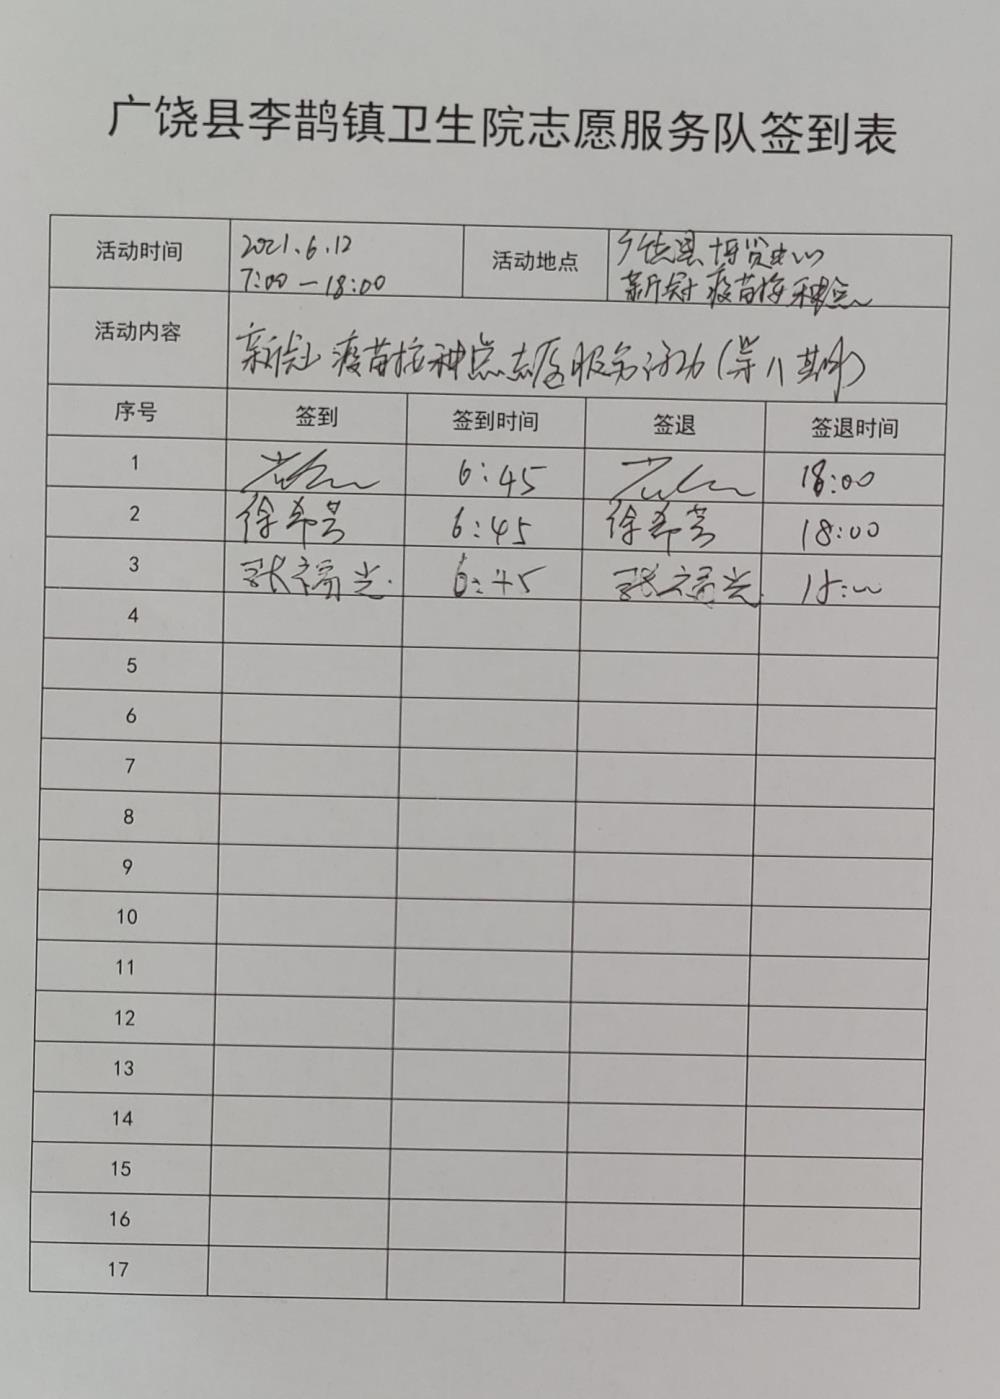 广饶县李鹊镇卫生院志愿服务队签到表
活动时间 2021.6.12 活动地点 广饶县博览中心
7:00—18:00 新冠疫苗接种点
活动内容 新冠疫苗接种点志愿服务活动(第八期)
序号 签到 签到时间 签退 签退时间
1 6:45 18:00
2 徐希芸 6:45 徐希芸 18:00
3 张福光 6:45 张福光 18:00
4
5
6
7
8
9
10
11
12
13
14
15
16
17